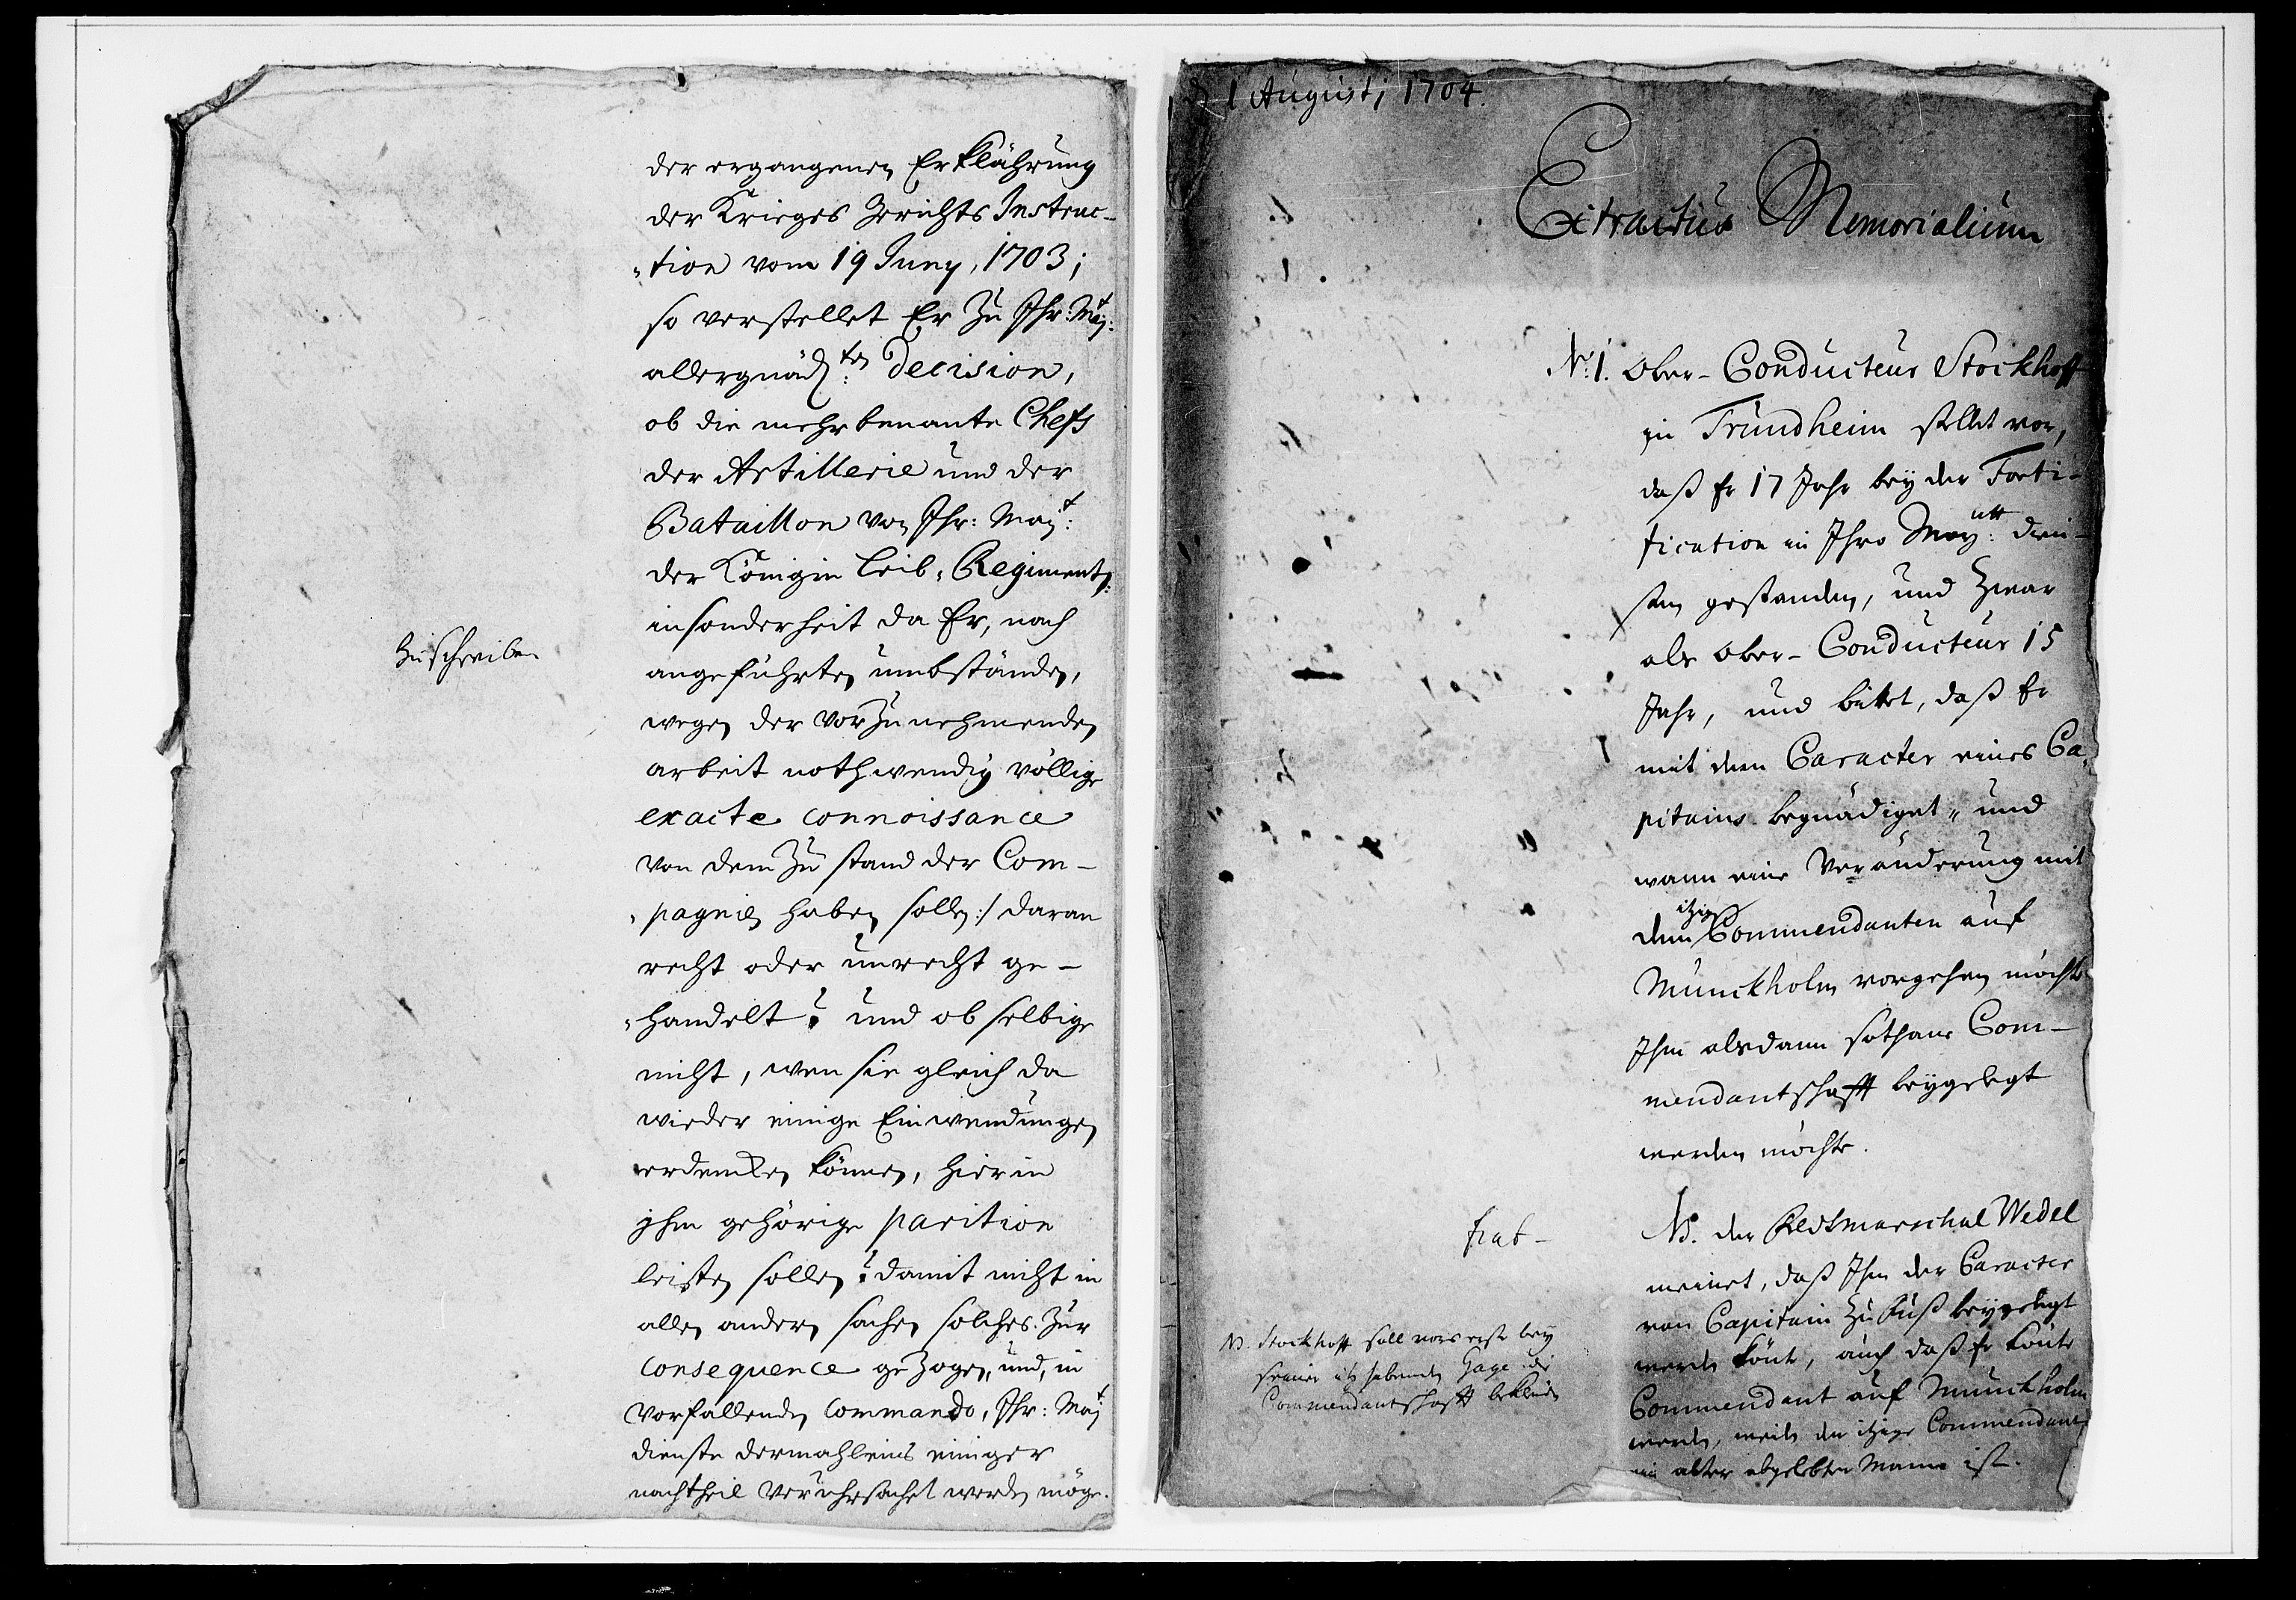 der ergangenen Erklährung
der Krieges Gerichts Instruc-
„tion vom 19 Juny, 1703;
so verstellet Er zu Ihr: Maj:t
allergnäd:ten Decision,
ob die mehrbenante Chefs
der Artillerie und der
Bataillon von Ihr: Maj:t
der Königin Leib-Regiment,:
insonderheit da Er, nach
angeführten umbständen,
Zuschreiben
wegen der vorzunehmenden
arbeit nothwendig völlige
exacte connoissance
von dem Zustand der Com-
„pagnien haben solle:/ daran
recht oder unrecht ge-
„handelt? und ob selbige
nicht, wen sie gleich da
wieder einige Einwendungen
erdencken können, hierin
ihm gehörige parition
leisten sollen? damit nicht in
allen andern sachen solches zur
consequence gezogen, und, in
vorfallenden Commando, Ihr: Maj:t
dienste dermahleins einiger
nachtheil veruhrsachet werden möge.
d 1 Augusti 1704.
Extractus Memorialium
N:1. Ober-Conducteur Stockhoff
in Trundheim stellet vor,
daß Er 17 Jahr bey der Forti-
fication in Ihro May:tt dien-
sten gestanden, und zwar
als Ober-Conducteur 15
Jahr, und bittet, daß Er
mit dem Caracter eines Ca-
pitains begnädiget, und
wann eine Veränderung mit
dem itzigen Commendanten auf
Munckholm vorgehen möchte
Ihm alsdann sothane Com-
mendantschafft beygelegt
werden möchte.
fiat-
NB. der Feldmarschal Wedel
meinet, daß Ihm der Caracter
von Capitain zu Fuß beygelegt
werden könte, auch daß Er könte
Commendant auf Munckholm
werden, weile der itzige Commendant
ein alter abgelebter Mann ist.
NB. Stockhoff soll vors erste bey
seiner itz habenden Gage die
Commendantschafft bekleiden